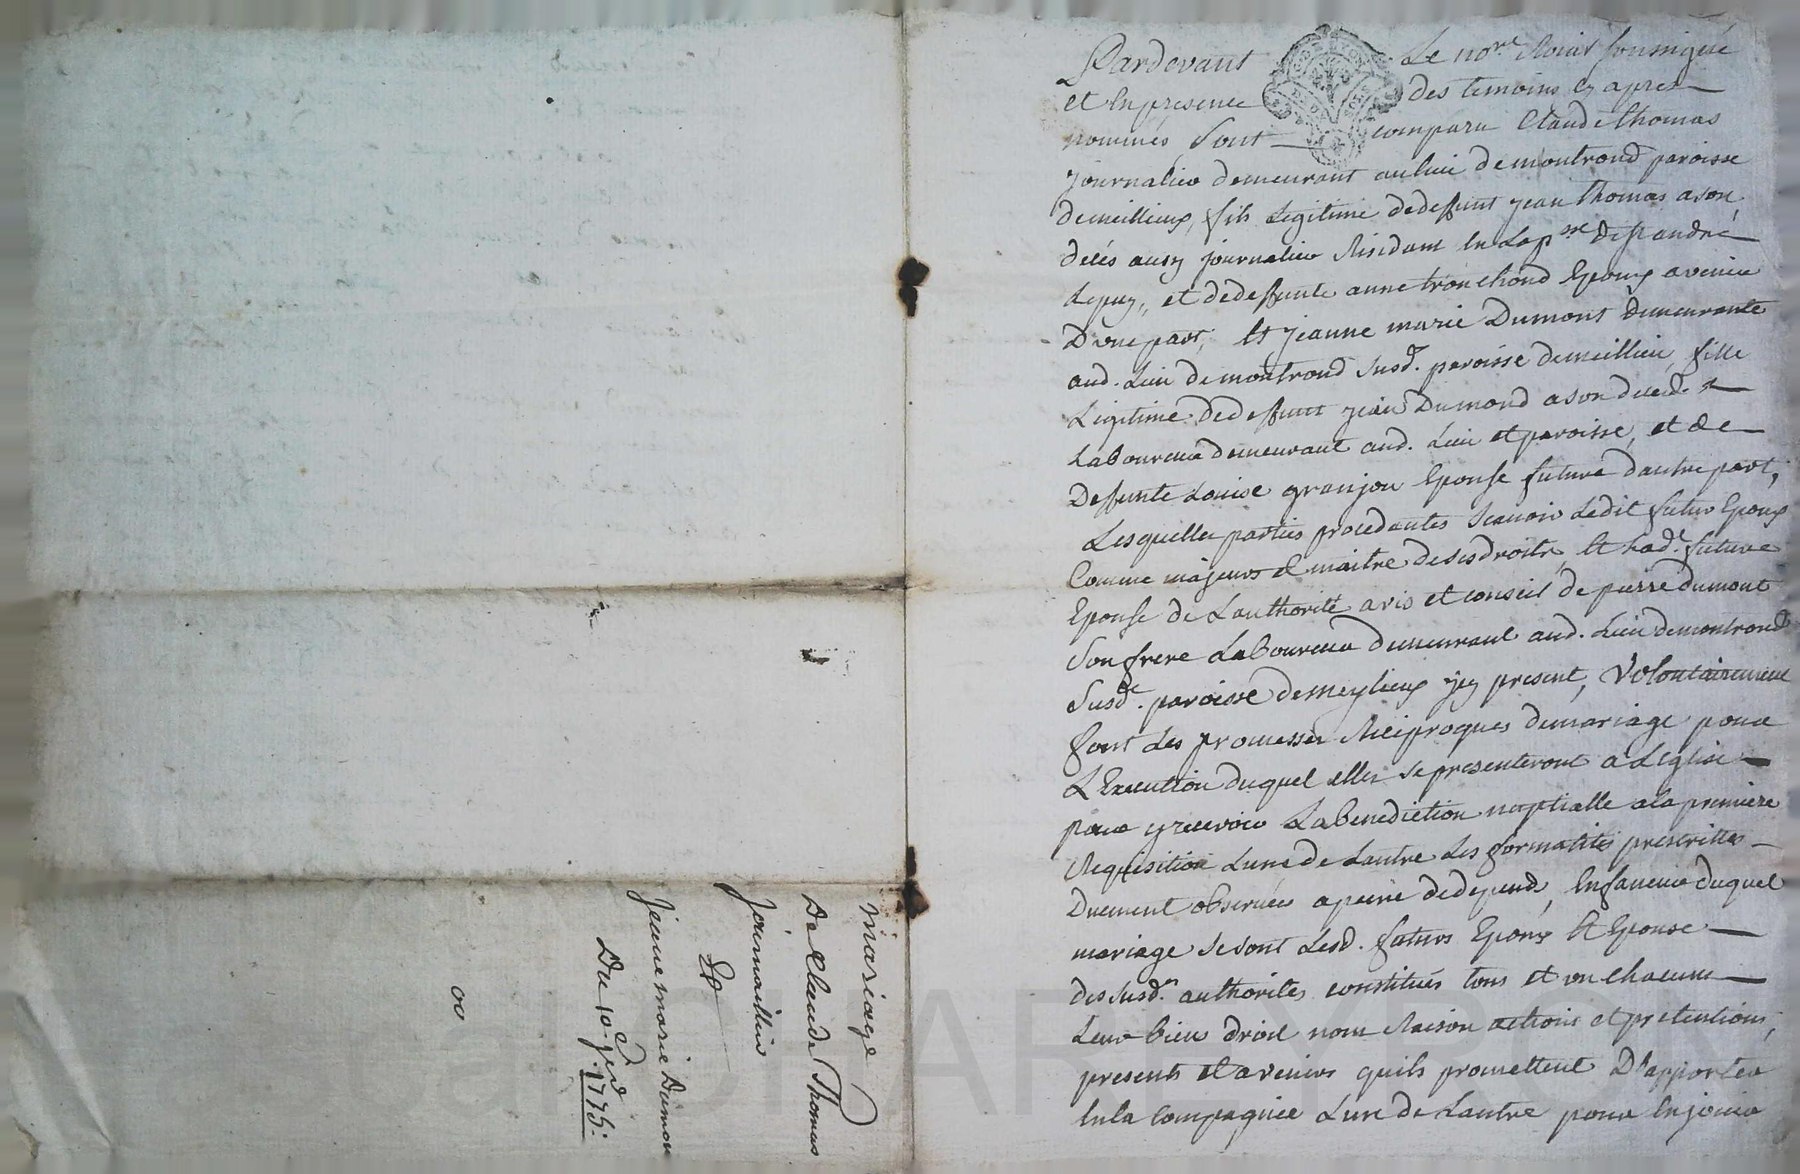 Pardevant Le no.re Roial soussigné
et en presence des temoins cy apres
nommés, sont comparu Claude thomas
journalier demeurant au lieu de montrond paroisse
demeillieux, fils Legitime dedeffunt jean thomas a son
décés aussy journalier Résidant en La p.sse de st andré
Lepuy,, et dedeffunte anne tronchond Epoux avenir
D'une part, Et jeanne marie Dumont demeurante
aud. Lieu de montrond susd. paroisse demeillieu, fille
Légitime dedeffunt jean Dumond a son
Laboureur demeurant aud. Lieu et paroisse, et de
Deffunte Louise granjon Epouse future d'autre part,
Lesquelles parties procedantes scavoir Ledit futur Epoux
Comme majeurs et maitre deses droits, Et lad.e future
Epouse de Lauthorité avis et conseil de pierre dumont
son frere Laboureur demeurant aud. Lieu demontrond
susd.e paroisse demeylieux icy present, Volontairement
font Les promesses Réciproques demariage pour
L'Execution duquel elles se presenteront a L'Eglise
pour y recevoir La benediction nuptialle ala premiere
Requisition Lune de Lautre Les formalités prescrittes
Duement observées a peine dedepend, En faveur duquel
mariage se sont Lesd. futurs Epoux Et Epouse
des susd.es authorités constitués tous et un chacuns
Leur bien droit nom Raison actions et pretentions,
presents et avenirs quils promettent D'apporter
En la Compagniee Lune de Lautre pour En jouir
Mariage
De Claude Thomas
Journaillier
&
Jeanne marie Dumon
Du 10.e fev.
1775:
00
CHAREYRON